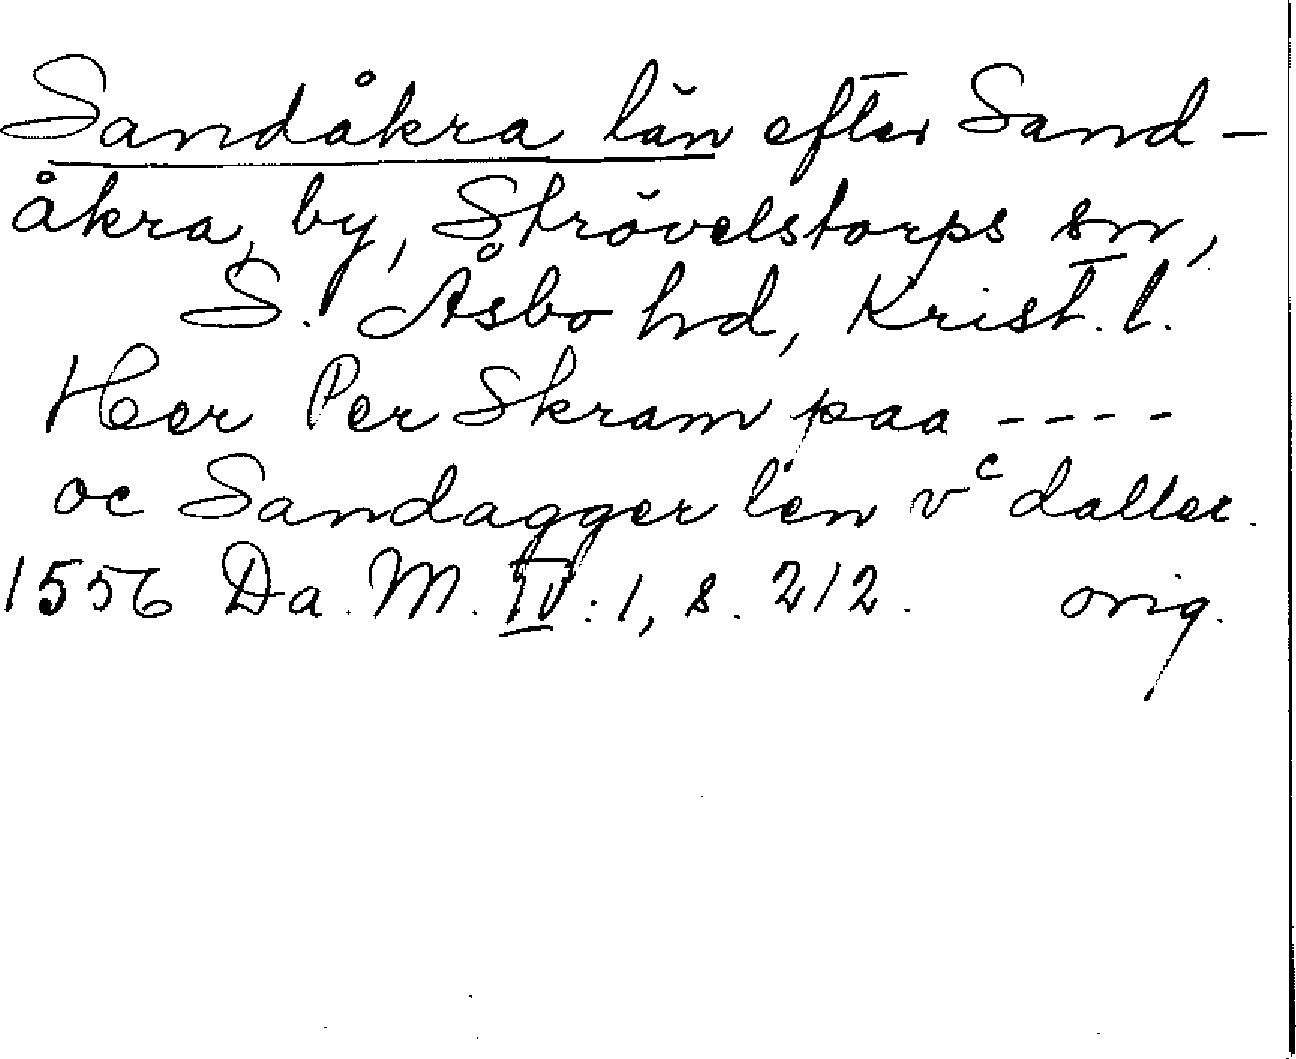 Sandåkra län efter Sand-
åkra, by, Strövelstorps sn,
S. Åsbo hd, Krist. l.
Heer Per Skram paa ----
oc Sandagger len vᶜ daller.
1556 Da. M. IV: 1, s. 212. orig.